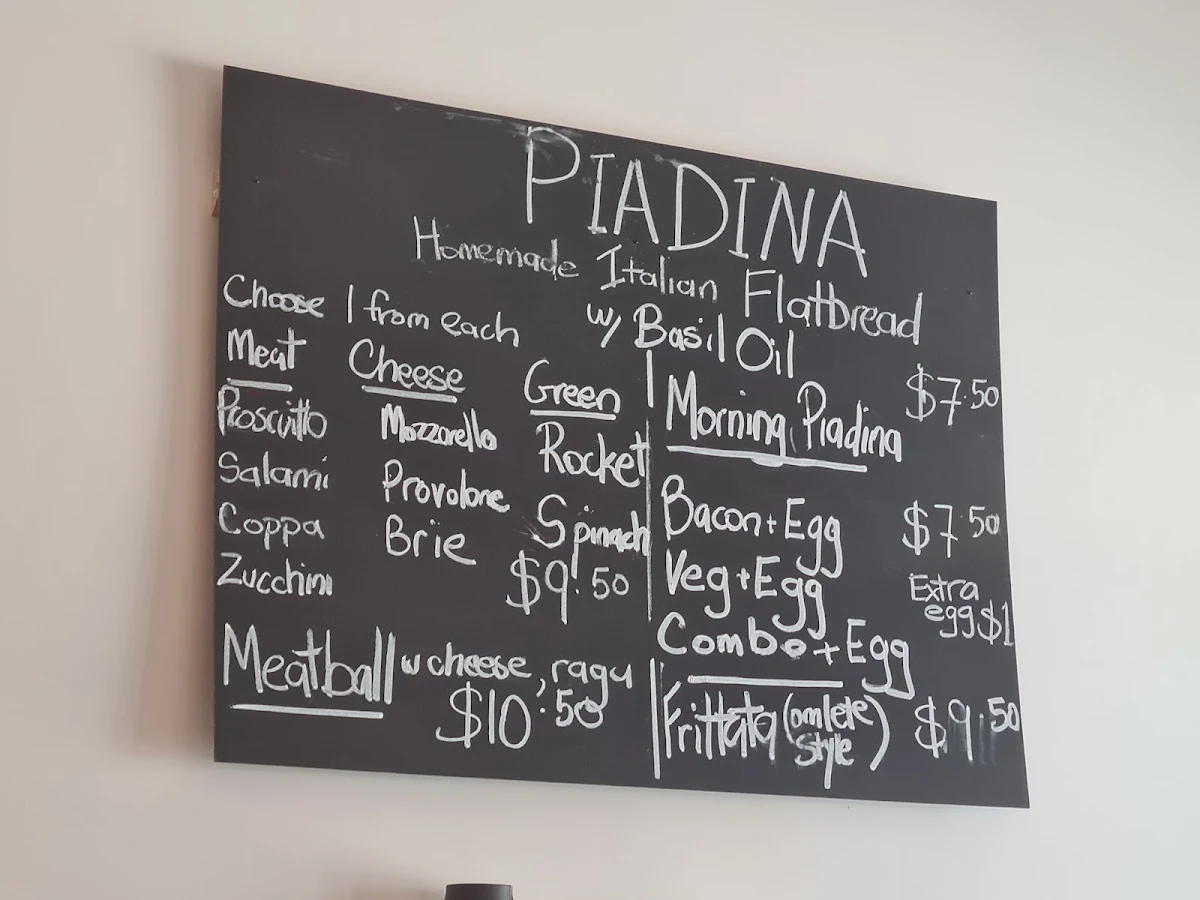 PIADINA
Homemade Italian Flatbread
w/ Basil Oil
Choose 1 from each
Meat Cheese Green
Prosciutto Mozzarella Rocket
Salami Provolone Spinach
Coppa Brie
Zucchini
$9.50
Meatball w cheese, ragu
$10.50
Morning Piadina $7.50
Bacon + Egg $7.50
Veg + Egg Extra
egg $1
Combo + Egg
Frittata (omlete
style) $9.50